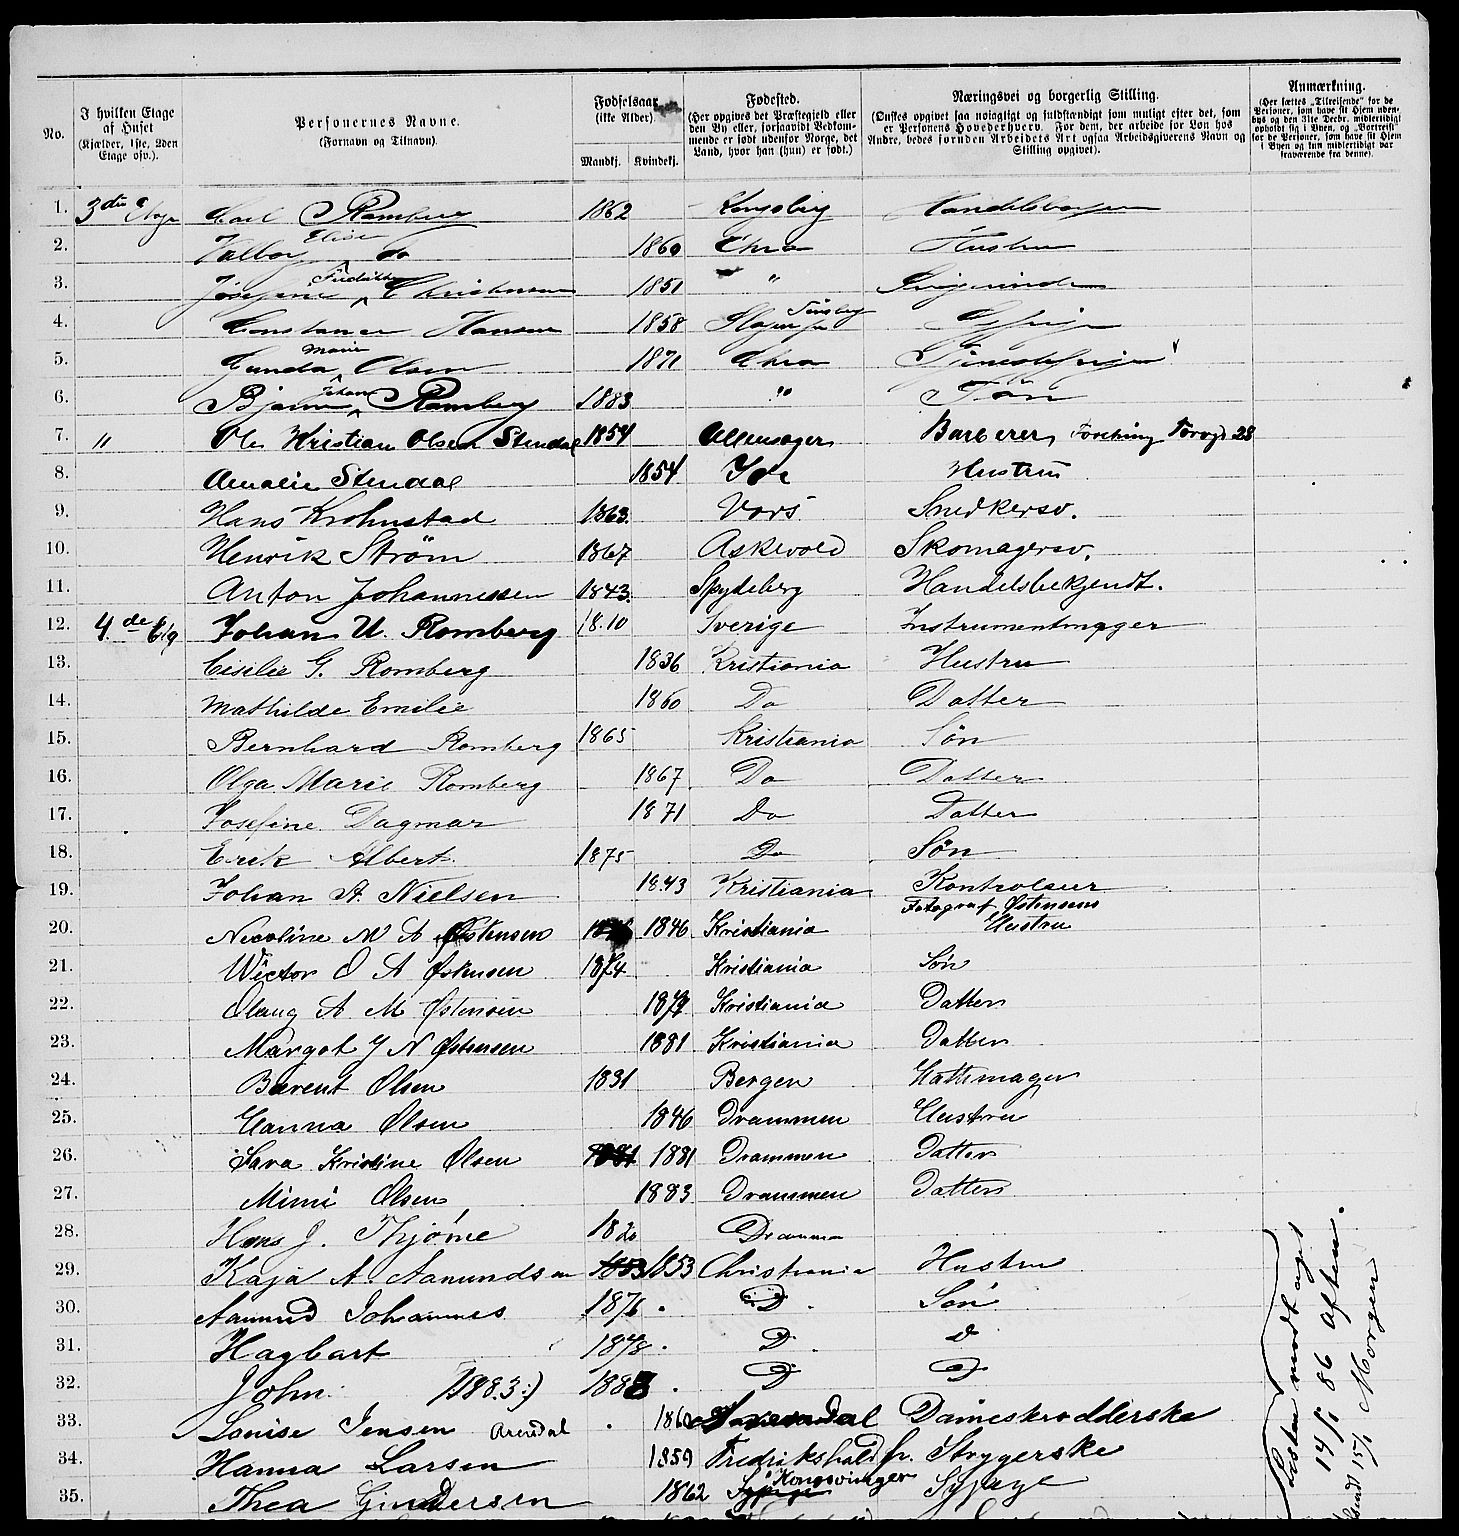 No.
I hvilken Etage af Huset (Kjælder, 1ste, 2den Etage osv.).
Personernes Navne. (Fornavn og Tilnavn).
Fødselsaar (ikke Alder). Mandkj. Kvindekj.
Fødested. (Her opgives det Præstegjeld eller den By eller, forsaavidt Vedkommende er født udenfor Norge, det Land, hvor han (hun) er født.)
Næringsvei og borgerlig Stilling. (Ønskes opgivet saa nøiagtigt og fuldstændigt som muligt efter det, som er Personens Hovederhverv. For dem, der arbeide for Løn hos Andre, bedes foruden Arbeidets Art ogsaa Arbeidsgiverens Navn og Stilling opgivet).
Anmærkning. (Her sættes „Tilreisende“ for de Personer, som have sit Hjem udenbys og den 31te Decbr. midlertidigt opholdt sig i Byen, og „Bortreist“ for de Personer, som have sit Hjem i Byen og kun midlertidigt var fraværende fra denne).
1. 3die Etage Carl Romberg 1862 Kongsberg
2. Valborg Elise do 1860 Chra Hustru
3. Josefine Fredrikke Christensen 1851 "
4. Constance Hansen 1858 Tønsberg
5. Gunda Marie Olsen 1871 Chra Tjenestepige
6. Bjarne Johan Romberg 1883 " Søn
7. " Ole Kristian Olsen Stendal 1854 Ullensager Barberer, Torvgd 28
8. Amalie Stendal 1854 Hustru
9. Hans Krohnstad 1863 Vors Snedkersv.
10. Henrik Strøm 1867 Askevold Skomagersv.
11. Anton Johannessen 1843 Spydeberg Handelsbetjendt.
12. 4de Etg Johan U. Romberg 1810 Sverige Instrumentmager
13. Cisilie G. Romberg 1836 Kristiania Hustru
14. Mathilde Emilie 1860 Do Datter
15. Bernhard Romberg 1865 Kristiania Søn
16. Olga Marie Romberg 1867 Do Datter
17. Josefine Dagmar 1871 Do Datter
18. Erik Albert. 1875 Do Søn
19. Johan A. Nielsen 1843 Kristiania Kontroleur
20. Nicoline M A Østensen 1846 Kristiania Fotograf Østensens Hustru
21. Wictor O A Østensen 1874 Kristiania Søn
22. Olaug A M Østensen Kristiania Datter
23. Margot J N Østensen 1881 Kristiania Datter
24. Barent Olsen 1831 Bergen Hattemager
25. Hanna Olsen 1846 Drammen Hustru
26. Sara Kristine Olsen 1881 1881 Drammen Datter
27. Mimi Olsen 1883 Drammen Datter
28. Hans J. Thjøme 1820 Drammen
29. Kaja A. Aanundsen 1853 1853 Christiania Hustru
30. Aanund Johannes 1876 D Søn
31. Hagbart 1878 D D
32. John (1883:) 1883 D D
33. Louise Jensen Arendal 1860 Dameskrædderske
34. Hanna Larsen 1859 Fredrikshald fr. Strygerske
35. Thea Gundersen 1862 Kongsvinger Sypige
Listen modtaget
14/1 86 aften.
15/1 Morgen